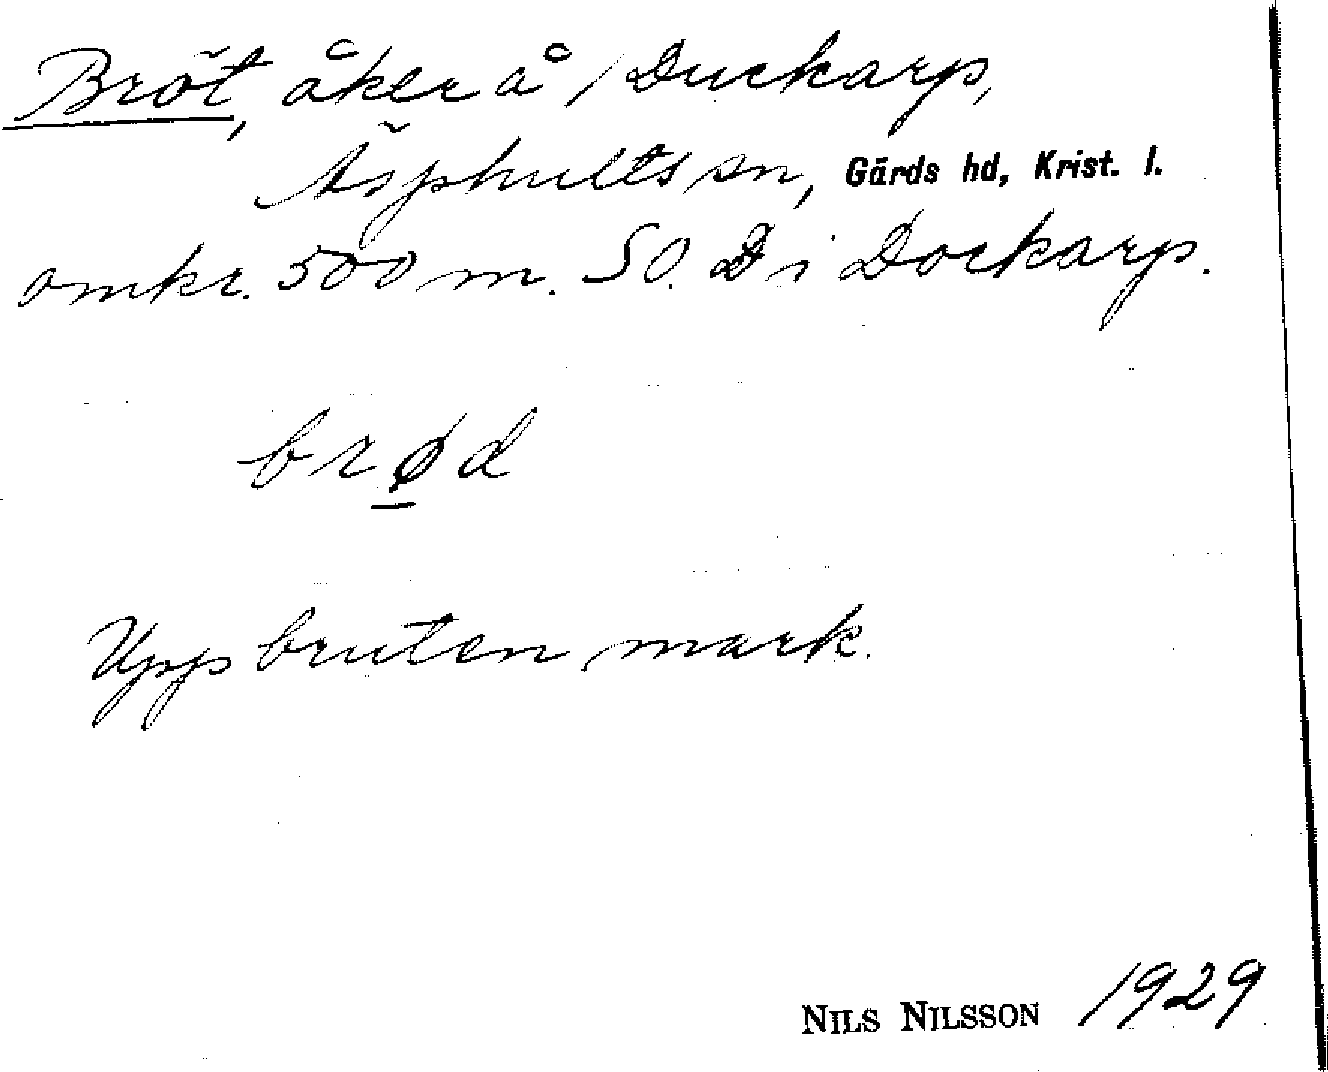 Bröt, åker å Duckarp,
Äsphults sn, Gärds hd, Krist. l.
omkr. 500 m. SO. D i Dockarp.
brød
Uppbruten mark.
NILS NILSSON 1929